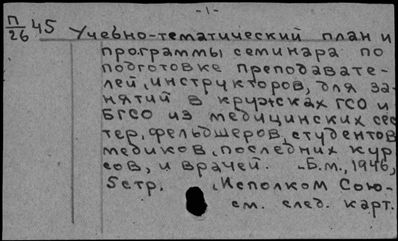 -1-
П/26 45 Учебно-тематический план и
программы семинара по
подготовке преподавате-
лей, инструкторов, для за-
нятий в кружках ГСО и
БГСО из медицинских сес
тер, фельдшеров, студентов
медиков, последних кур
сов, и врачей. Б.м., 1946,
5 стр. , Исполком Сою-
см. след. карт.